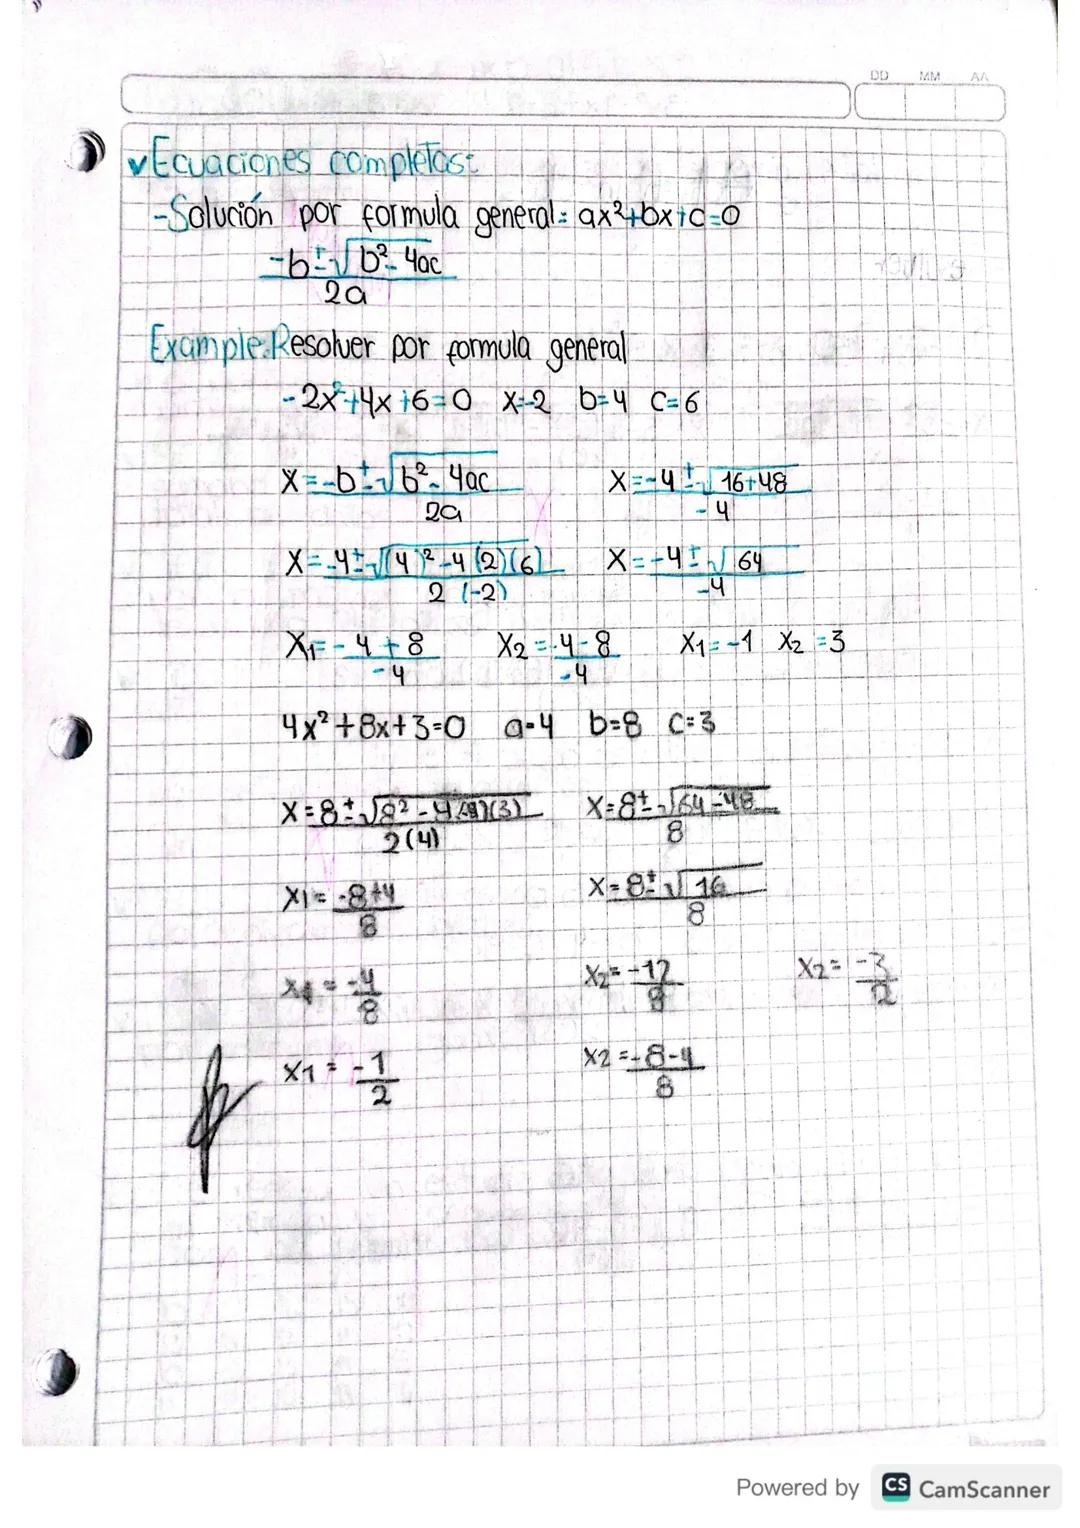 DD MM AA
✓Ecuaciones completas:
-Solución por formula general: ax²+bx+c=0
-b±√b²-4ac
2a
Example: Resolver por formula general
-2x²+4x+6=0 x=-2 b=4 c=6
X=-b±√b²-4ac X=-4±√16+48
2a -4
X=-4±√(4)²-4(2)(6) X=-4±√64
2(-2) -4
X1=-4+8 X2=-4-8 X1=-1 X2=3
-4 -4
4x²+8x+3=0 a=4 b=8 c=3
X=8±√8²-4(4)(3) X=8±√64-48
2(4) 8
X1=-8+4 X=8±√16
8 8
X1=-4 X2=-12 X2=-3
8 8 2
X1=-1 X2=-8-4
2 8
Powered by CS CamScanner